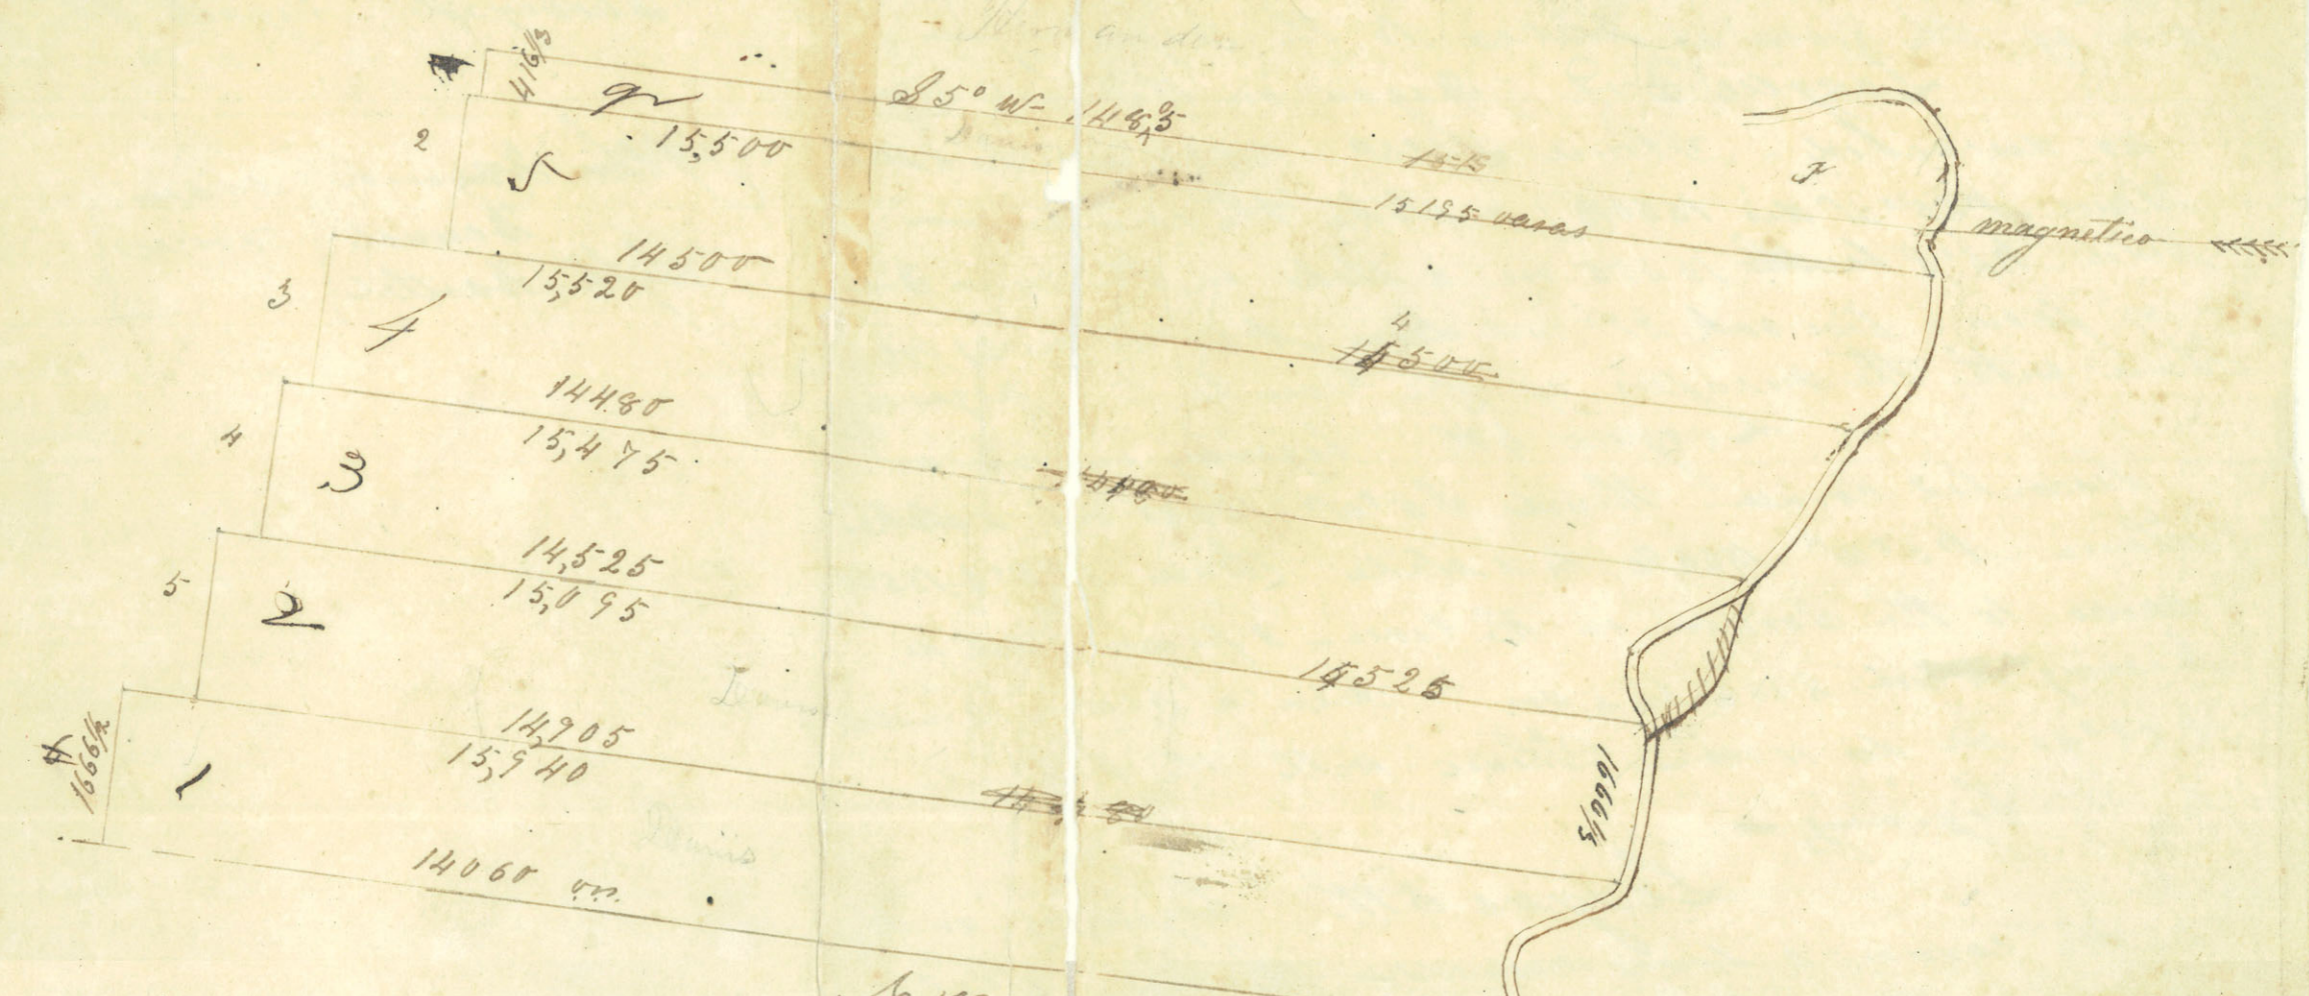 416⅓
S 5° W- 148,5
15,500
2
5
15195 varas
magnetico
14500
15,520
3
4
4
14500
14480
15,475
4
3
14,525
15,095
5
2
14525
14,905
15,940
1666½
1
1666⅓
14060 vs.